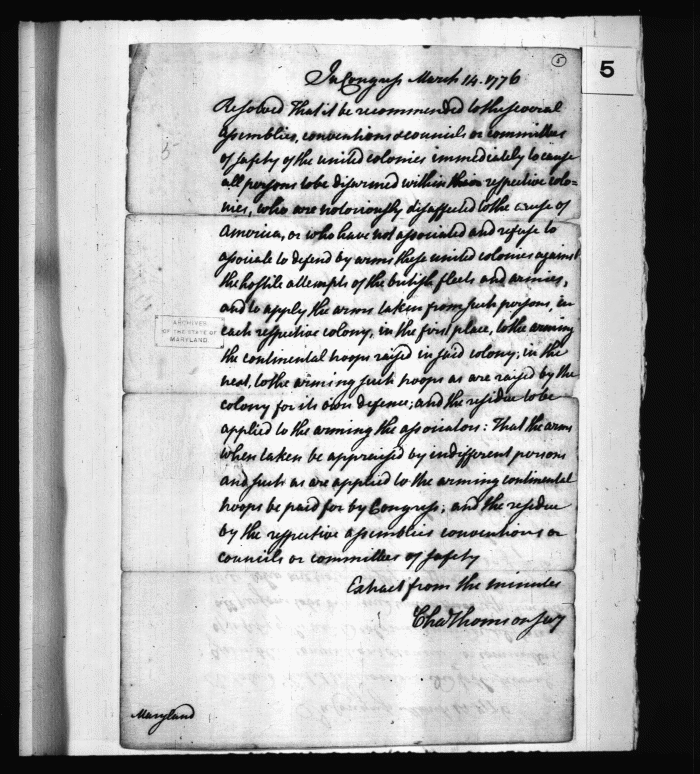 5
5
In Congress March 14. 1776
Resolved That it be recommended to the several
assemblies, conventions & councils or committees
of safety of the united colonies immediately to cause
all persons to be disarmed within their respective colo=
nies, who are notoriously disaffected to the cause of
America, or who have not associated and refuse to
associate to defend by arms these united colonies against
the hostile attempts of the british fleets and armies,
and to apply the arms taken from such persons, in
each respective colony, in the first place, to the arming
the continental troops raised in said colony; in the
next, to the arming such troops as are raised by the
colony for its own defence; and the residue to be
applied to the arming the associators: That the arms
when taken be appraised by indifferent persons
and such as are applied to the arming continental
troops be paid for by Congress; and the residue
by the respective assemblies conventions or
councils or committees of safety
Extract from the minutes
Cha Thomson secy
Maryland
5
ARCHIVES
OF THE STATE OF
MARYLAND